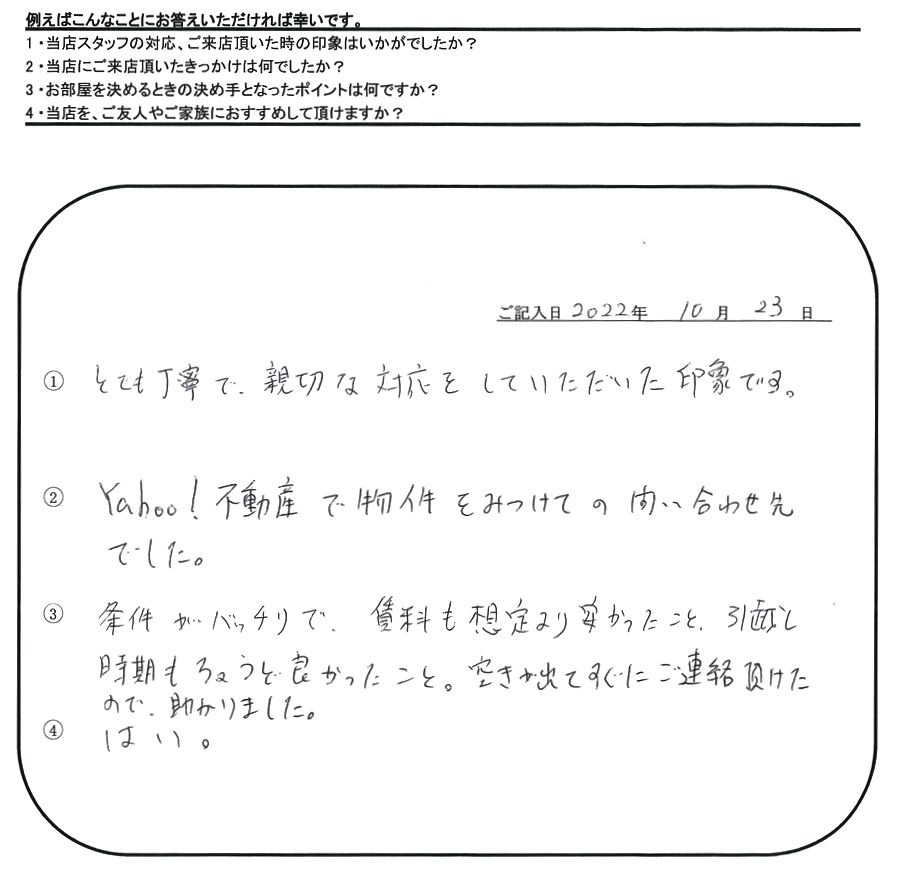 例えばこんなことにお答えいただければ幸いです。
1・当店スタッフの対応、ご来店頂いた時の印象はいかがでしたか？
2・当店にご来店頂いたきっかけは何でしたか？
3・お部屋を決めるときの決め手となったポイントは何ですか？
4・当店を、ご友人やご家族におすすめして頂けますか？
ご記入日 2022年 10月 23日
① とても丁寧で、親切な対応をしていただいた印象です。
② Yahoo!不動産で物件をみつけての問い合わせ先
でした。
③ 条件がバッチリで、賃料も想定より安かったこと、引越し
時期もちょうど良かったこと。空きが出てすぐにご連絡頂けた
ので、助かりました。
④ はい。